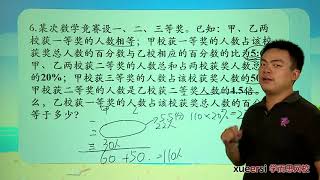 6.某次数学竞赛设一、二、三等奖。已知：甲、乙两
校获一等奖的人数相等；甲校获一等奖的人数占该校
获奖总人数的百分数与乙校相应的百分数的比为5:
甲、乙两校获二等奖人数总和占两校获奖人数
的20%；甲校获三等奖的人数占该校获奖人数的5
甲校获二等奖的人数是乙校获二等奖人数的4.5倍
么，乙校获一等奖的人数占该校获奖总人数的百分
等于多少？
一
二
22人
110×20%=2
三 30人
60+50=110人
xueersi 学而思网校